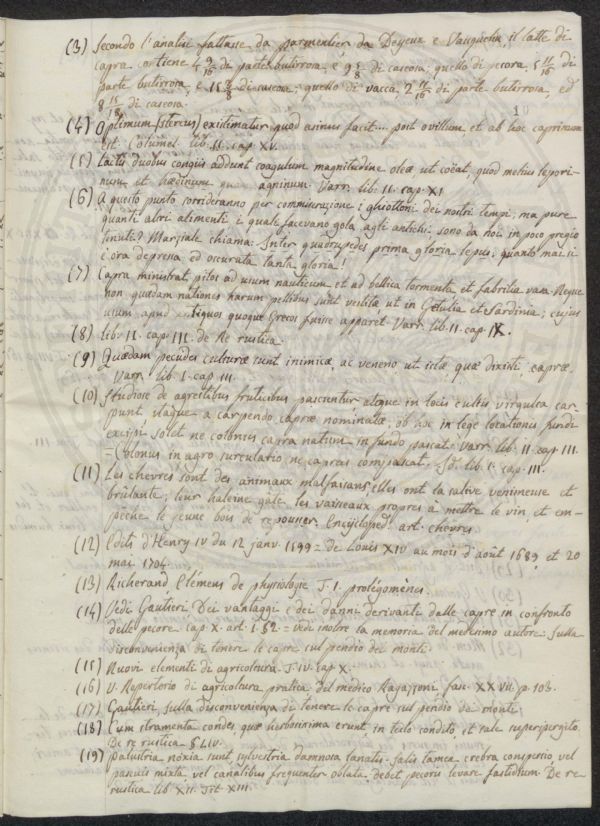 (3) Secondo l'analisi fattasse da parmentier, da Deyeux e Vauquelin, il latte di
capra contiene 4 9/16 di parte butirrosa e 9 5/8 di caseosa; quello di pecora, 5 11/16 di
parte butirrosa, e 15 di caseosa; quello di vacca 2 11/16 di parte butirrosa, ed
8 15/16 di caseosa.
(4) Optimum (stercus) existimatur quod asinus facit... post ovillum et ab hoc caprinum
est. Columel. lib. II. cap. XV.
(5) Lactis duobus congiis addunt coagulum magnitudine oleæ ut coëat, quod melius lepori-
num et hædinum quam agninum. Varr. lib. II. cap. XI
(6) A questo punto sorrideranno per commiserazione i ghiottoni dei nostri tempi; ma pure
quanti altri alimenti i quali facevano gola agli antichi, sono da noi in poco pregio
tenuti? Marziale chiama: Inter quadrupedes prima gloria lepus: quanto mai si
è ora depressa ed oscurata tanta gloria!
(7) Capra ministrat pilos ad usum nauticum et ad bellica tormenta et fabrilia vasa. Neque
non quædam nationes harum pellibus sunt vestitæ ut in Gætulia et Sardinia; cujus
usum apud antiquos quoque Græcos fuisse apparet. Varr. lib. II. cap. IX.
(8) lib. II. cap. III. de Re rustica.
(9) Quædam pecudes culturæ sunt inimicæ, ac veneno ut istæ quæ dixisti; capræ.
Varr. lib. I. cap. III.
(10) Studiose de agrestibus fruticibus pascuntur, atque in locis cultis virgulta car-
punt, itaque a carpendo capræ nominatæ, ob hoc in lege locationis fundi
excipi solet ne colonus capra natum in fundo pascat. Varr. lib. II. cap III.
= Colonus in agro surculario ne capras compascat. = Id. lib. I. cap. III.
(11) Les chevres sont des animaux malfaisans, elles ont la salive venimeuse et
brulante; leur haleine gâte les vaisseaux propres à mettre le vin, et em-
pêche le jeune bois de repousser. Encycloped. art. chevres
(12) Edits d'Henry IV du 12 janv. 1599 = de Louis XIV au mois d'août 1689, et 20
mai 1704.
(13) Richerand Elémens de physiologie T. I. prolégomènes.
(14) Vedi Gautieri Dei vantaggi e dei danni derivanti dalle capre in confronto
delle pecore cap. X. art. I. § 2. = vedi inoltre la memoria del medesimo autore. Sulla
disconvenienza di tenere le capre sul pendio dei monti.
(15) Nuovi elementi di agricoltura T. IV. cap. X.
(16) V. Repertorio di agricoltura pratica del medico Ragazzoni. fasc. XXVII. p. 103.
(17) Gautieri, sulla disconvenienza di tenere le capre sul pendio dei monti.
(18) Cum stramenta condes quæ herbosissima erunt, in tecto condito, et sale superspergito.
De re rustica § LIV.
(19) palustria noxia sunt, sylvestria damnosa lanatis. Salis tamen crebra conspersio, vel
pascuis mixta, vel canalibus frequenter oblata, debet pecoris levare fastidium. De re
rustica lib. XII. Tit. XIII.